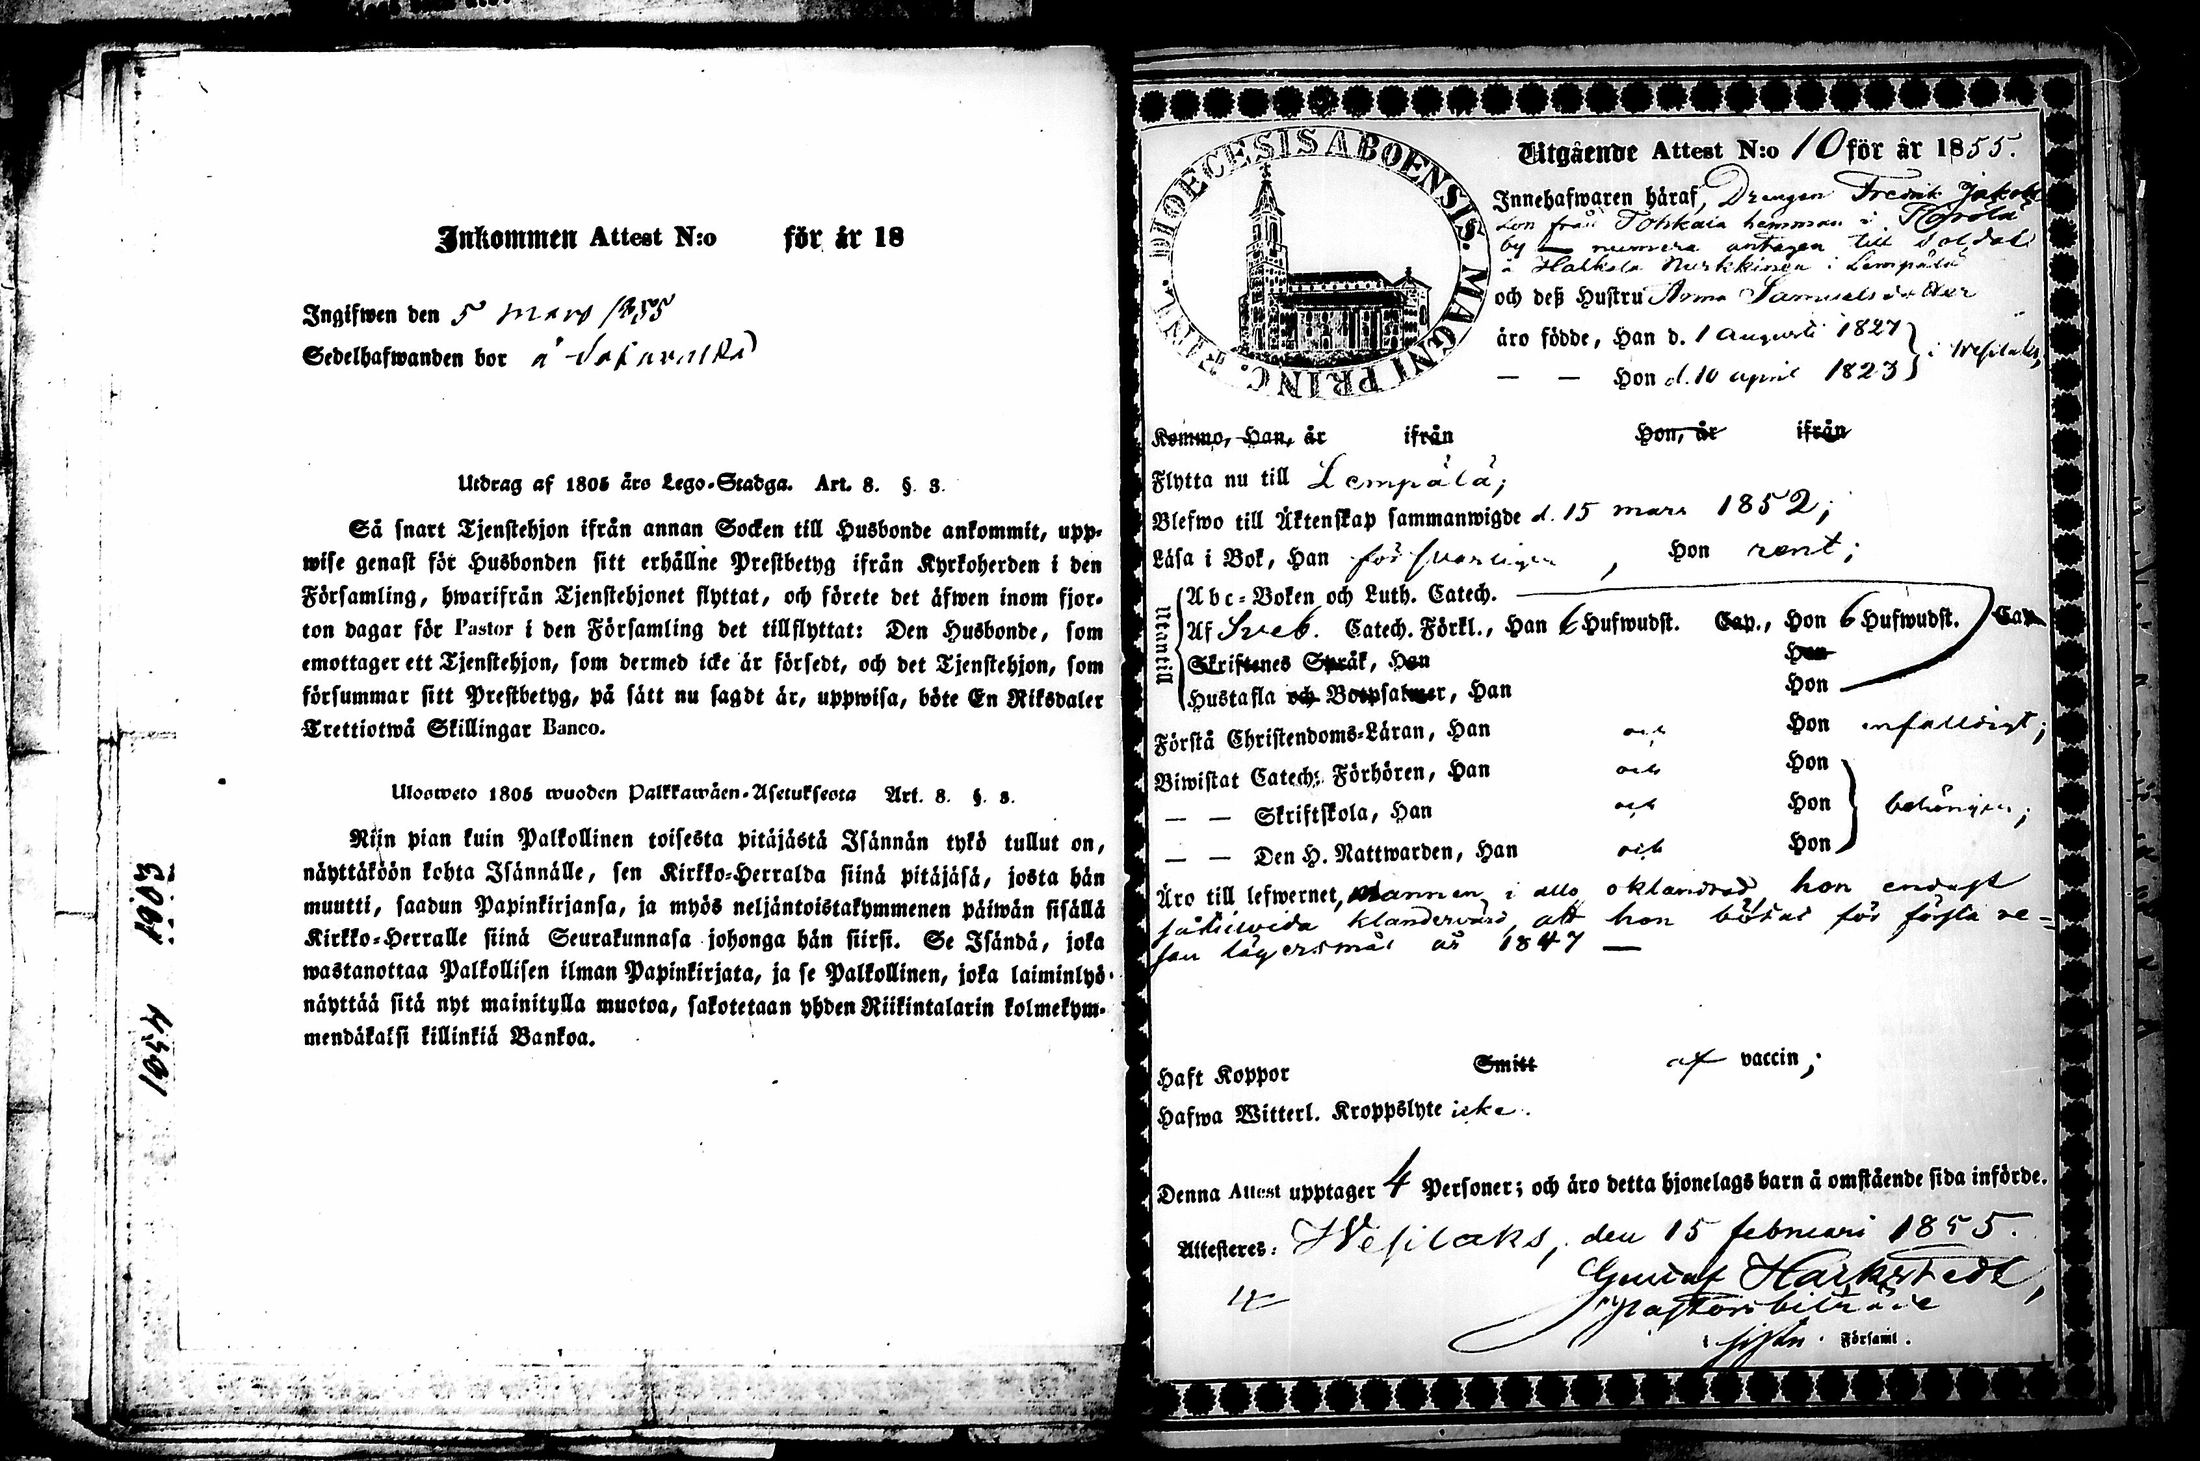 Inkommen Attest N:o för år 18
Ingifwen den 5 mars 1855
Sedelhafwanden bor å
Utdrag af 1805 års Lego-Stadga. Art. 8. §. 3.
Så snart Tjenstehjon ifrån annan Socken till Husbonde ankommit, upp-
wise genast för Husbonden sitt erhållne Prestbetyg ifrån Kyrkoherden i den
Församling, hwarifrån Tjenstehjonet flyttat, och förete det äfwen inom fjor-
ton dagar för Pastor i den Församling det tillflyttat: Den Husbonde, som
emottager ett Tjenstehjon, som dermed icke är försedt, och det Tjenstehjon, som
försummar sitt Prestbetyg, på sätt nu sagdt är, uppwisa, böte En Riksdaler
Trettiotwå Skillingar Banco.
Ulosweto 1805 wuoden Palkkawäen-Asetuksesta Art. 8. §. 3.
Niin pian kuin Palkollinen toisesta pitäjästä Isännän tykö tullut on,
näyttäköön kohta Isännälle, sen Kirkko-Herralda siinä pitäjäsä, josta hän
muutti, saadun Papinkirjansa, ja myös neljäntoistakymmenen päiwän sisällä
Kirkko-Herralle siinä Seurakunnasa johonga hän siirsi. Se Isändä, joka
wastanottaa Palkollisen ilman Papinkirjata, ja se Palkollinen, joka laiminlyö
näyttää sitä nyt mainitulla muotoa, sakotetaan yhden Riikintalarin kolmekym-
mendäkaksi killinkiä Bankoa.
DIOECESIS ABOENSIS. MAGNI PRINC. FINL.
Utgående Attest N:o 10 för år 1855.
Innehafwaren häraf, Drengen Fredrik Jakobs
son från Tohkala hemman i
by — numera antagen till soldat
å Halkola i Lempälä
och deß Hustru Anna Samuelsdotter
äro födde, Han d. 1 augusti 1827
— — Hon d. 10 april 1823 } i Wesilaks,
Kommo, Han, år ifrån Hon, år ifrån
Flytta nu till Lempälä;
Blefwo till Äktenskap sammanwigde d. 15 mars 1852;
Läsa i Bok, Han försvarligen, Hon rent;
Utantill
Abc-Boken och Luth. Catech.
Af Sveb. Catech. Förkl., Han 6 Hufwudst. Cap., Hon 6 Hufwudst. Cap
Skriftenes Språk, Han Hon
Hustafla och Botpsalmer, Han Hon
Förstå Christendoms-Läran, Han och Hon enfalldigt;
Biwistat Catech: Förhören, Han och Hon
— — Skriftskola, Han och Hon behörigen;
— — Den H. Nattwarden, Han och Hon
Äro till lefwernet, mannen i allo oklandrad, hon endast
såtillvida klandervärd, att hon bötat för första re-
san lägersmål år 1847 —
Haft Koppor Smitt af vaccin;
Hafwa Witterl. Kroppslyte icke.
Denna Attest upptager 4 Personer; och äro detta hjonelags barn å omstående sida införde.
Attesteres: Wesilaks, den 15 februari 1855.
Gustaf Harkstedt,
Pastorsbiträde
i Församl.